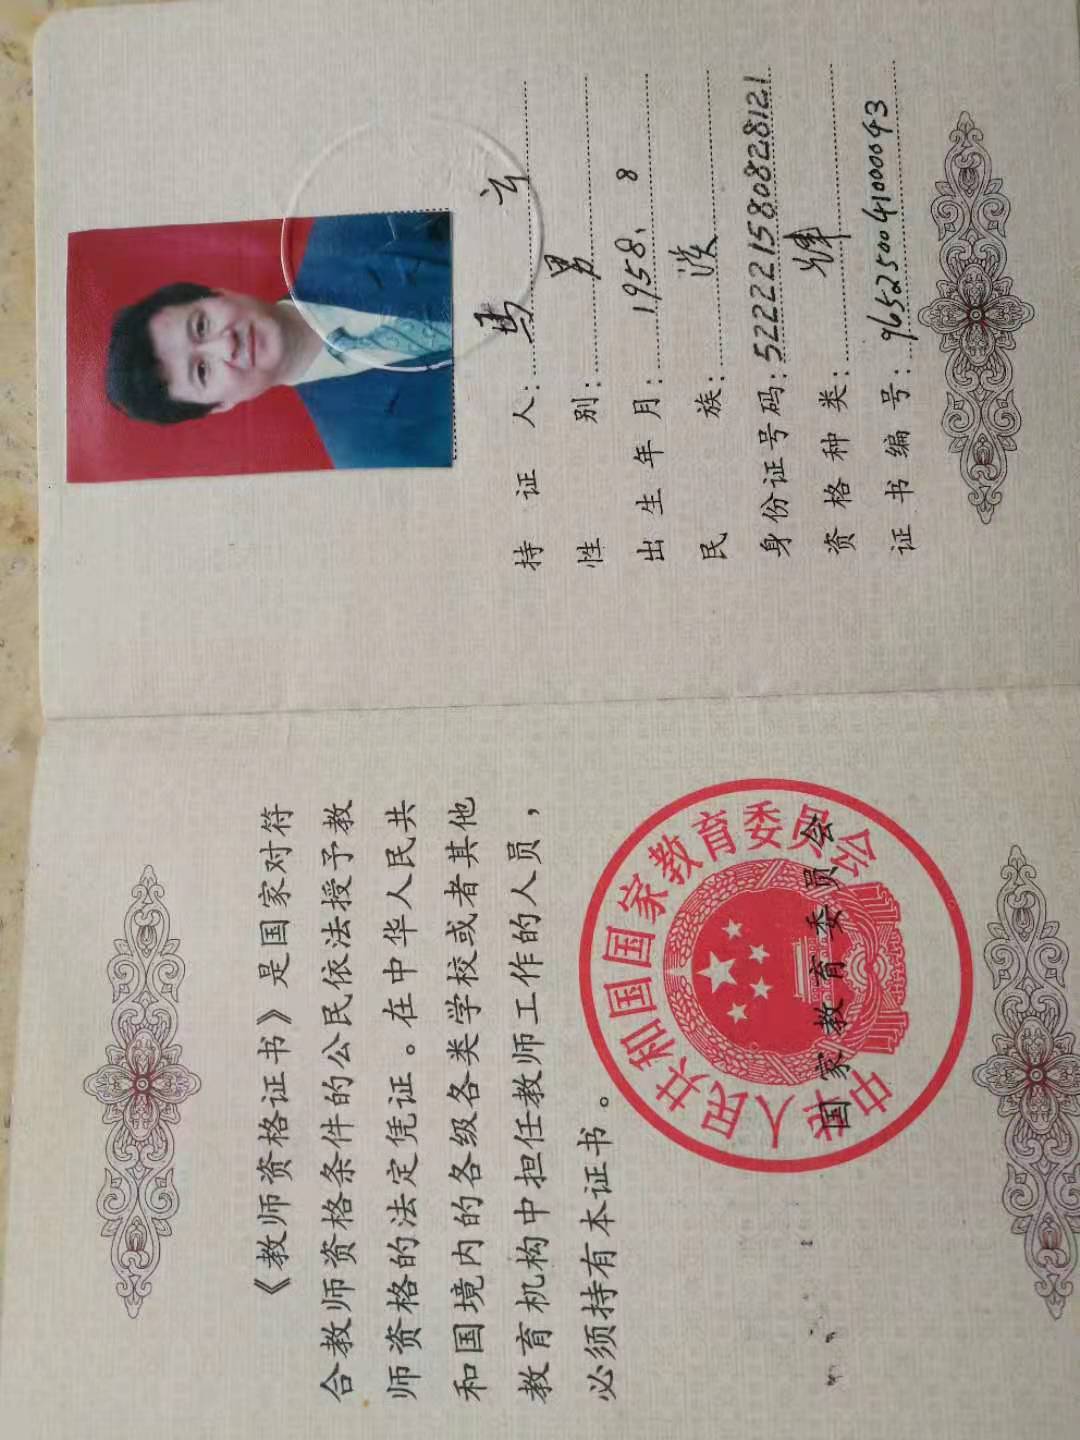 《教师资格证书》是国家对符
合教师资格条件的公民依法授予教
师资格的法定凭证。在中华人民共
和国境内的各级各类学校或者其他
教育机构中担任教师工作的人员，
必须持有本证书。
中华人民共和国国家教育委员会
国家教育委员会
持证人：马云
性别：男
出生年月：1958.8
民族：汉
身份证号码：522221580828121
资格种类：
证书编号：965250041000043